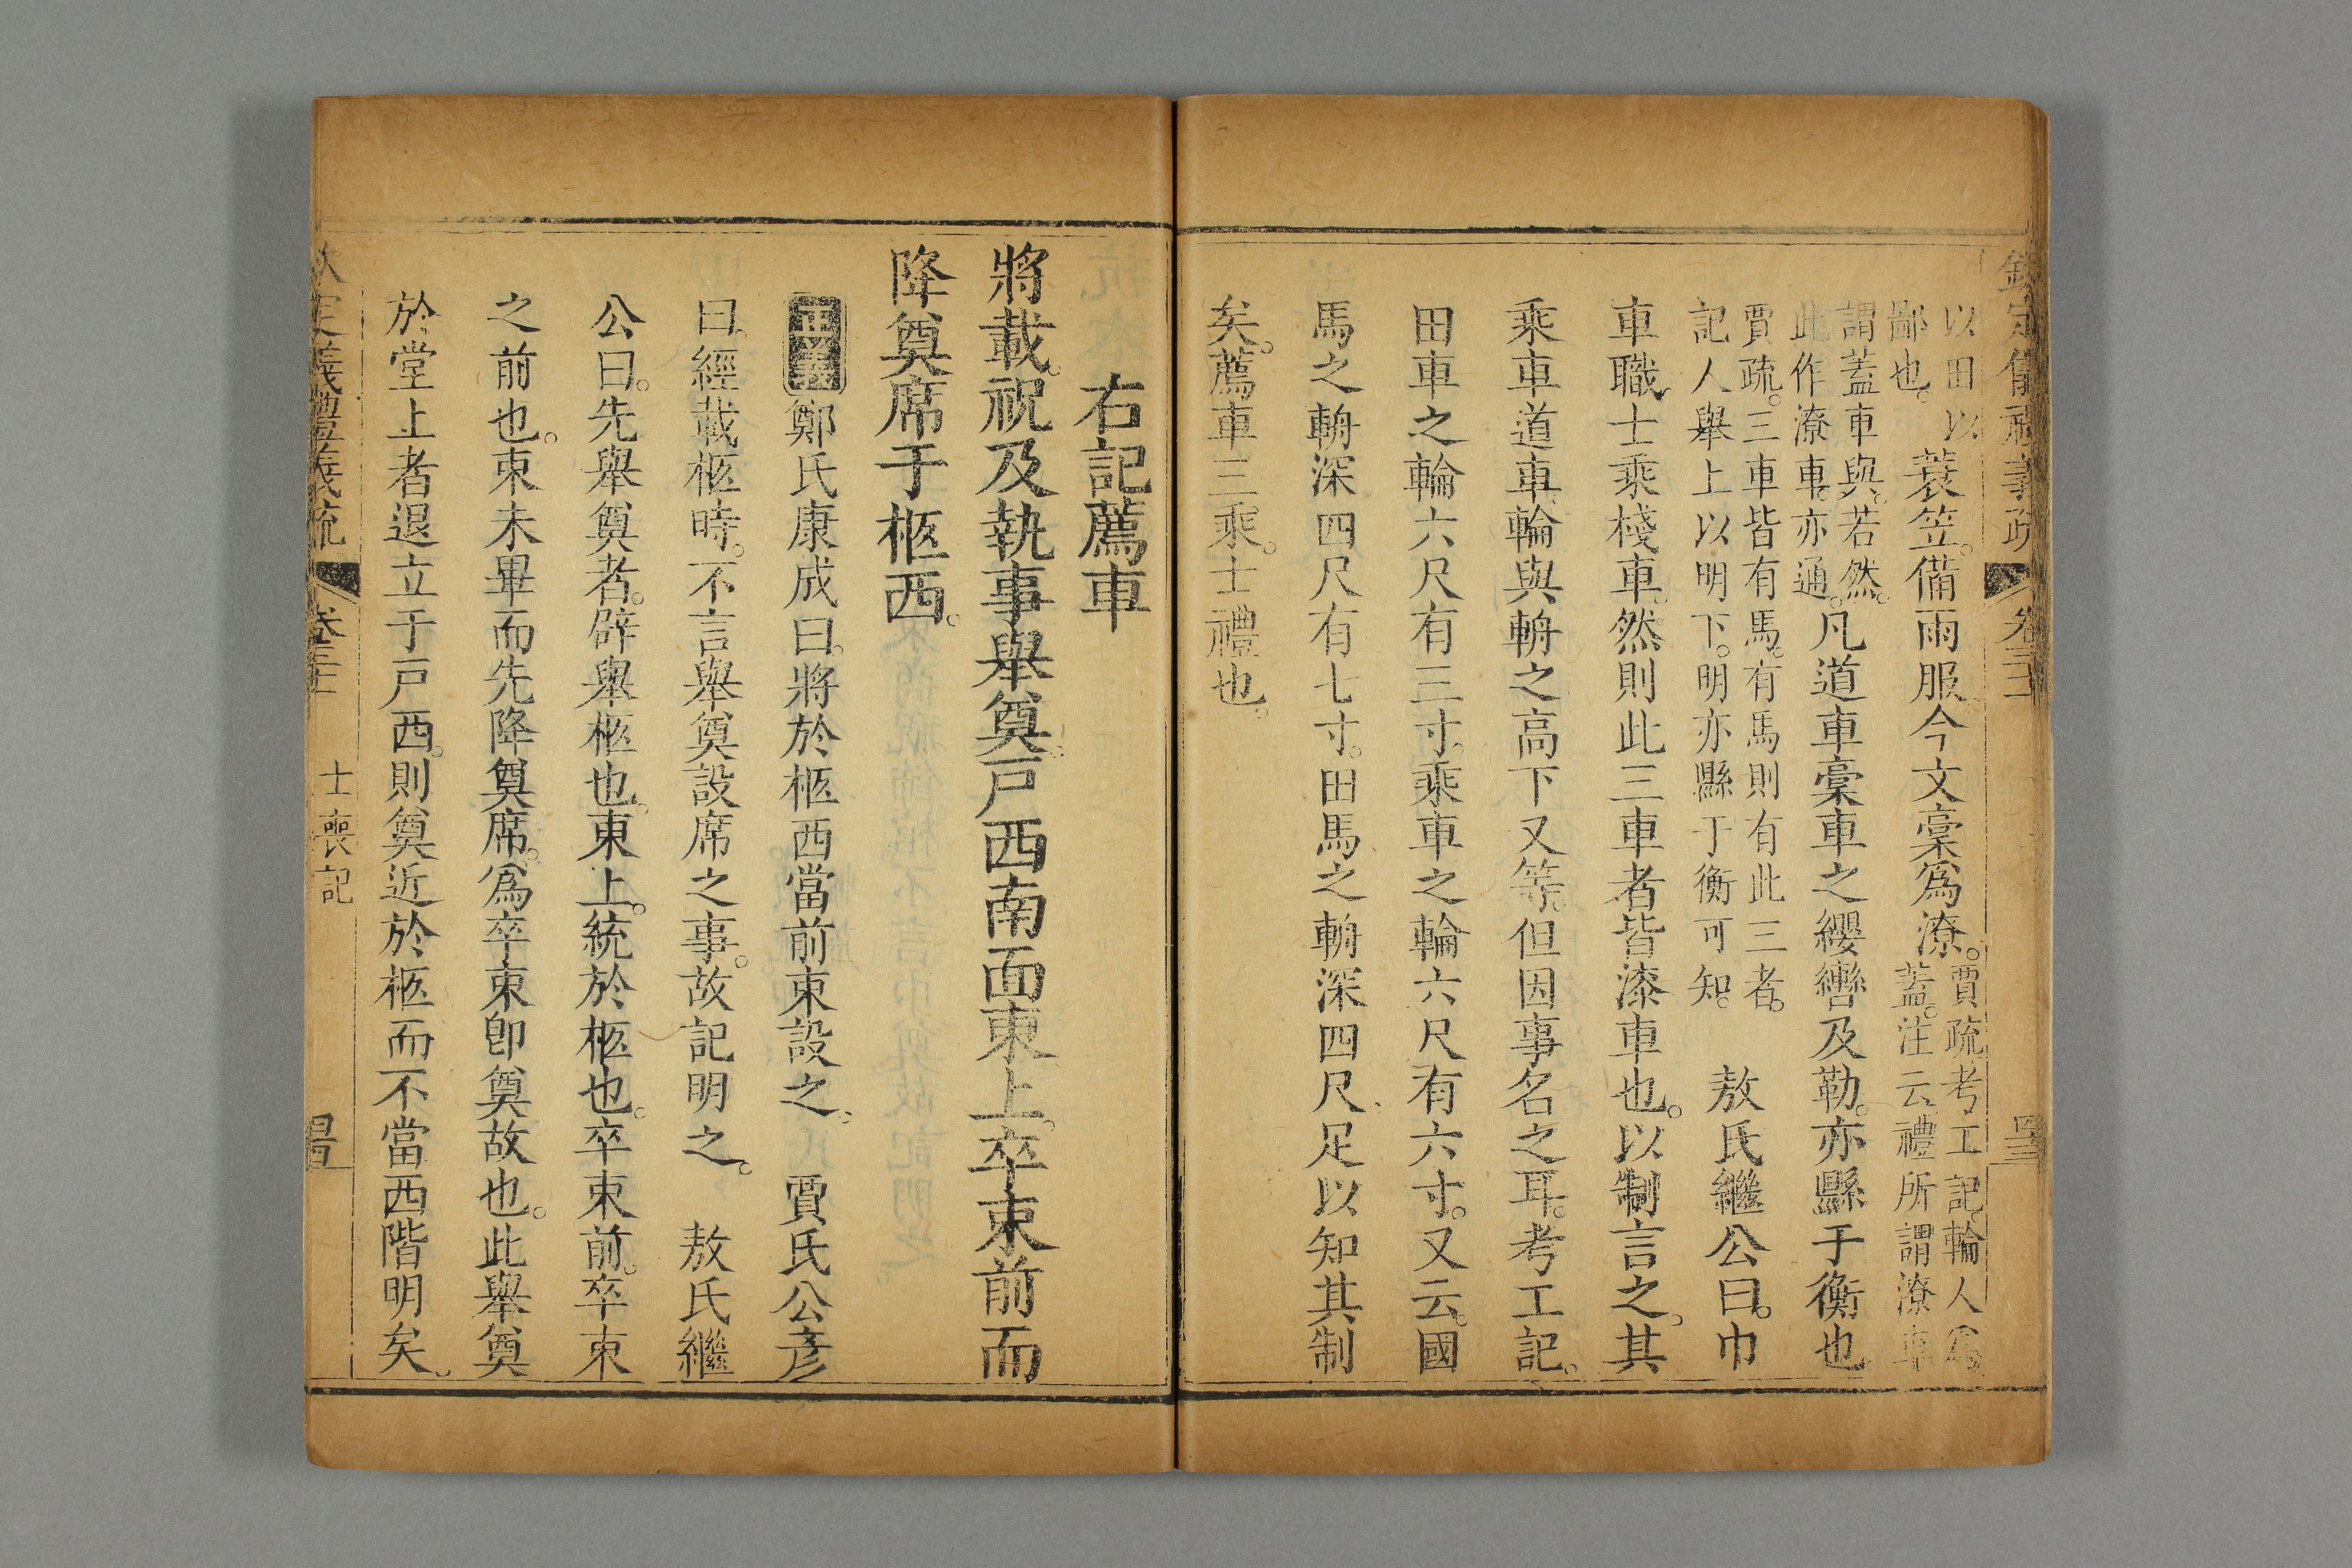 以田以
鄙也。
蓑笠。備雨服。今文稾爲潦。
賈疏考工記輪人爲
蓋。注云禮所謂潦車
謂蓋車與。若然。
此作潦車。亦通。
凡道車稾車之纓轡及勒。亦縣于衡也。
賈疏。三車皆有馬。有馬則有此三者。
記人舉上以明下。明亦縣于衡可知。
敖氏繼公曰。巾
車職。士乘棧車。然則此三車者皆漆車也。以制言之。其
乘車道車。輪與輈之高下又等。但因事名之耳。考工記。
田車之輪六尺有三寸。乘車之輪六尺有六寸。又云。國
馬之輈深四尺有七寸。田馬之輈深四尺。足以知其制
矣。薦車三乘。士禮也。
右記薦車
將載。祝及執事舉奠。戸西南面東上。卒束前而
降奠席于柩西。
正義鄭氏康成曰。將於柩西當前束設之。 賈氏公彦
曰。經載柩時。不言舉奠設席之事。故記明之。 敖氏繼
公曰。先舉奠者。辟舉柩也。東上。統於柩也。卒束前。卒束
之前也。束未畢而先降奠席。爲卒束卽奠故也。此舉奠
於堂上者退立于戸西。則奠近於柩而不當西階明矣。
士喪記